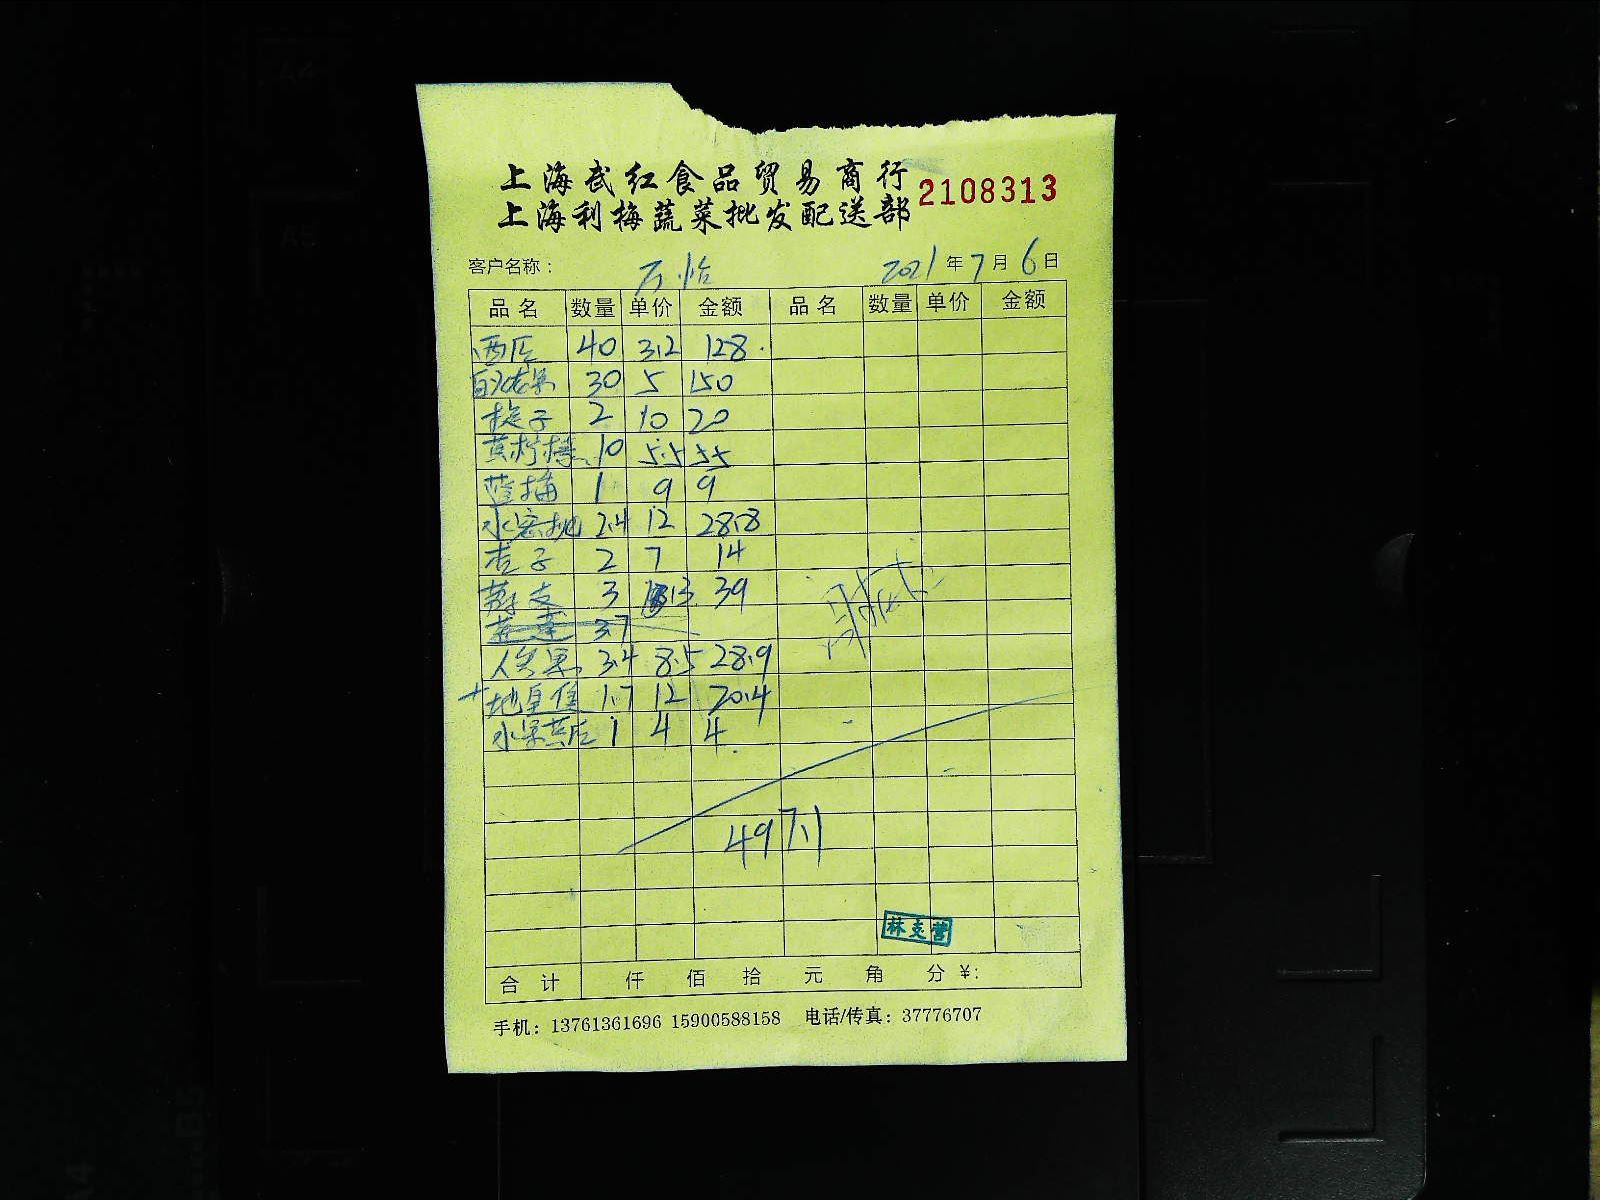 上海武红食品贸易商行
上海利梅蔬菜批发配送部 2108313
客户名称： 万怡 2021年7月6日
品名 数量 单价 金额 品名 数量 单价 金额
西瓜 40 3.2 128
30 5 150
桃子 2 10 20
黄柠檬 10 5.5 55
蓝莓 1 9 9
水密桃 2.4 12 28.8
杏子 2 7 14
荔支 3 13 39
3.7
人参果 3.4 8.5 28.9
1.7 12 20.4
水果黄瓜 1 4 4
497.1
林支营
合计 仟 佰 拾 元 角 分 ￥:
手机：13761361696 15900588158 电话/传真：37776707